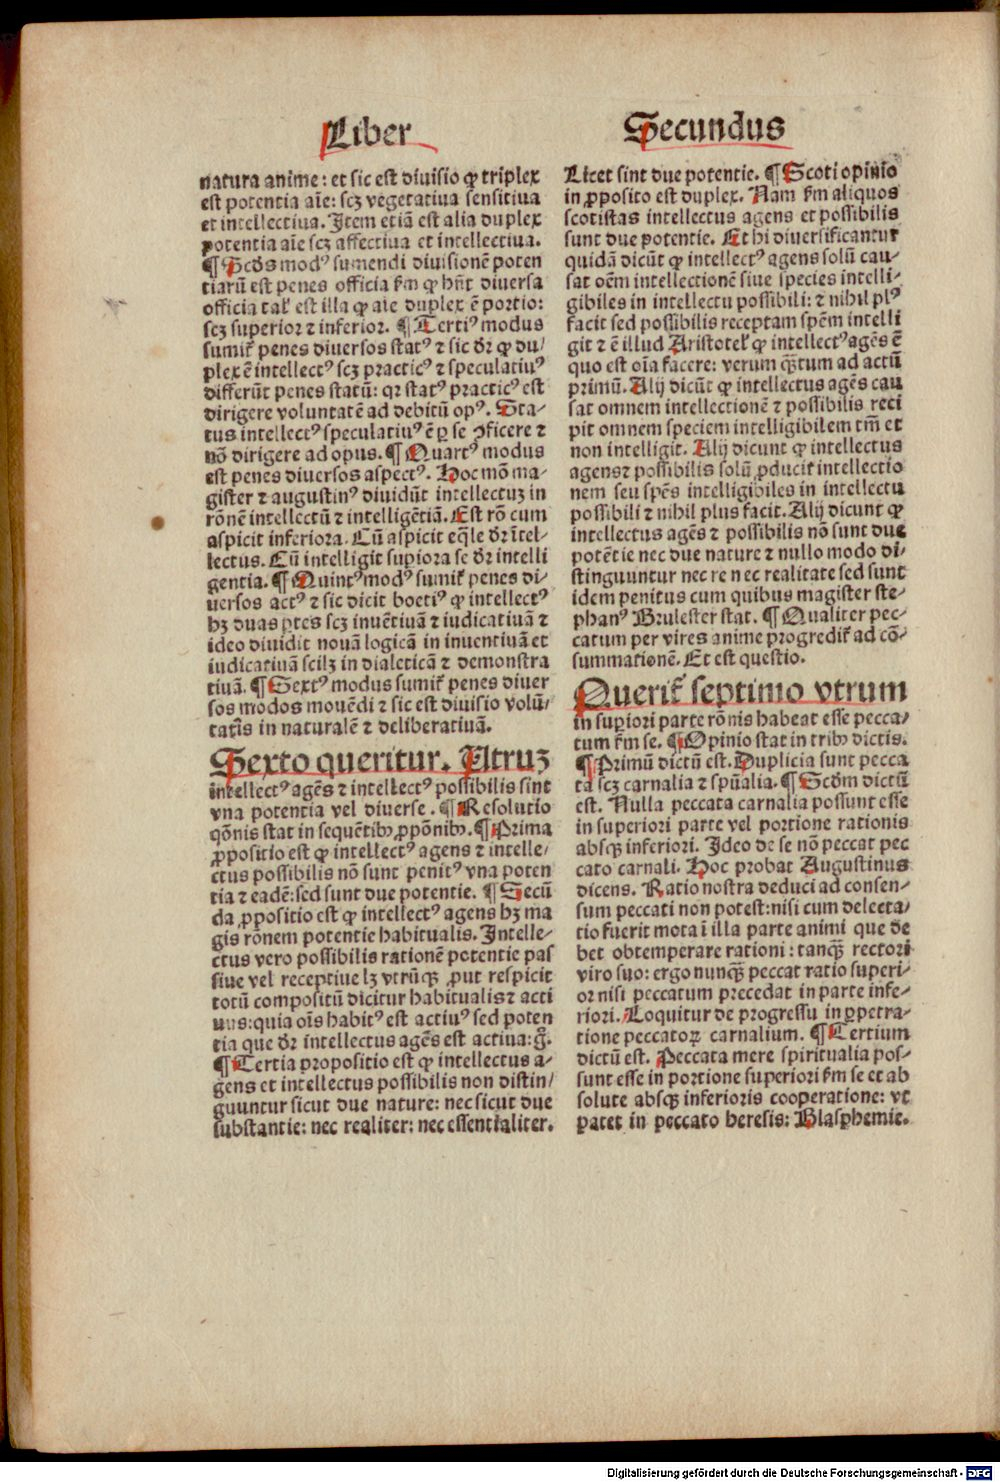 Liber Secundus
natura anime: et sic est diuisio ꝙ triplex
est potentia aīe: scꝫ vegetatiua sensitiua
et intellectiua. Item etiā est alia duplex
potentia aīe scꝫ affectiua et intellectiua.
¶ Scd̄s modꝰ sumendi diuisionē poten
tiarū est penes officia ẜm ꝙ hn̄t diuersa
officia tal̓ est illa ꝙ aīe duplex ē portio:
scꝫ superior ⁊ inferior. ¶ Tertiꝰ modus
sumit̓ penes diuersos statꝰ ⁊ sic dr̄ ꝙ du⸗
plex ē intellectꝰ scꝫ practicꝰ ⁊ speculatiuꝰ
differūt penes statū: qꝛ statꝰ practicꝰ est
dirigere voluntatē ad debitū opꝰ. Sta⸗
tus intellectꝰ speculatiuꝰ ē ꝑ se ꝯficere ⁊
nō dirigere ad opus. ¶ Quartꝰ modus
est penes diuersos aspectꝰ. Hoc mō ma⸗
gister ⁊ augustinꝰ diuidūt intellectuꝫ in
rōnē intellectū ⁊ intelligētiā. Est rō cum
aspicit inferiora. Cū aspicit eq̄le dr̄ ītel⸗
lectus. Cū intelligit supiora se dr̄ intelli
gentia. ¶ Quintꝰ modꝰ sumit̓ penes di⸗
uersos actꝰ ⁊ sic dicit boetiꝰ ꝙ intellectꝰ
hꝫ duas ꝑtes scꝫ inuētiuā ⁊ iudicatiuā ⁊
ideo diuidit nouā logicā in inuentiuā et
iudicatiuā scilꝫ in dialeticā ⁊ demonstra
tiuā. ¶ Sextꝰ modus sumit̓ penes diuer
sos modos mouēdi ⁊ sic est diuisio volū⸗
tatis in naturalē ⁊ deliberatiuā.
Sexto queritur. Utruꝫ
intellectꝰ agēs ⁊ intellectꝰ possibilis sint
vna potentia vel diuerse. ¶ Resolutio
qōnis stat in sequētibꝰ ꝓpōnibꝰ. ¶ Prima
ꝓpositio est ꝙ intellectꝰ agens ⁊ intelle⸗
ctus possibilis nō sunt penitꝰ vna poten
tia ⁊ eadē: sed sunt due potentie. ¶ Secū
da ꝓpositio est ꝙ intellectꝰ agens hꝫ ma
gis rōnem potentie habitualis. Intelle⸗
ctus vero possibilis rationē potentie pas
siue vel receptiue lꝫ vtrūqꝫ ꝓut respicit
totū compositū dicitur habitualis ⁊ acti
uus: quia oīs habitꝰ est actiuꝰ sed poten
tia que dr̄ intellectus agēs est actiua: g̊.
¶ Tertia propositio est ꝙ intellectus a⸗
gens et intellectus possibilis non distin⸗
guuntur sicut due nature: nec sicut due
substantie: nec realiter: nec essentialiter.
Licet sint due potentie. ¶ Scoti opinio
in ꝓposito est duplex. Nam ẜm aliquos
scotistas intellectus agens et possibilis
sunt due potentie. Et hi diuersificantur
quidā dicūt ꝙ intellectꝰ agens solū cau⸗
sat oēm intellectionē siue species intelli⸗
gibiles in intellectu possibili: ⁊ nihil plꝰ
facit sed possibilis receptam spēm intelli
git ⁊ ē illud Aristotel̓ ꝙ intellectꝰ agēs ē
quo est oīa facere: verum qꝫtum ad actū
primū. Alij dicūt ꝙ intellectus agēs cau
sat omnem intellectionē ⁊ possibilis reci
pit omnem speciem intelligibilem tm̄ et
non intelligit. Alij dicunt ꝙ intellectus
agens ⁊ possibilis solū ꝓducit̓ intellectio
nem seu spēs intelligibiles in intellectu
possibili ⁊ nihil plus facit. Alij dicunt ꝙ
intellectus agēs ⁊ possibilis nō sunt due
potētie nec due nature ⁊ nullo modo di⸗
stinguuntur nec re nec realitate sed sunt
idem penitus cum quibus magister ste⸗
phanꝰ Brulefer stat. ¶ Qualiter pec⸗
catum per vires anime progredit̓ ad cō⸗
summationē. Et est questio.
Querit̓ septimo vtrum
in supiori parte rōnis habeat esse pecca⸗
tum ẜm se. ¶ Opinio stat in tribꝰ dictis.
¶ Primū dictū est. Duplicia sunt pecca
ta scꝫ carnalia ⁊ spūalia. ¶ Scd̄m dictū
est. Nulla peccata carnalia possunt esse
in superiori parte vel portione rationis
absqꝫ inferiori. Ideo de se nō peccat pec
cato carnali. Hoc probat Augustinus
dicens. Ratio nostra deduci ad consen⸗
sum peccati non potest: nisi cum delecta⸗
tio fuerit mota ī illa parte animi que de
bet obtemperare rationi: tanqꝫ rectori
viro suo: ergo nunqꝫ peccat ratio superi⸗
or nisi peccatum precedat in parte infe⸗
riori. Loquitur de progressu in ꝑpetra⸗
tione peccatoꝝ carnalium. ¶ Tertium
dictū est. Peccata mere spiritualia pos⸗
sunt esse in portione superiori ẜm se et ab
solute absqꝫ inferioris cooperatione: vt
patet in peccato heresis: Blasphemie.
Digitalisierung gefördert durch die Deutsche Forschungsgemeinschaft - DFG